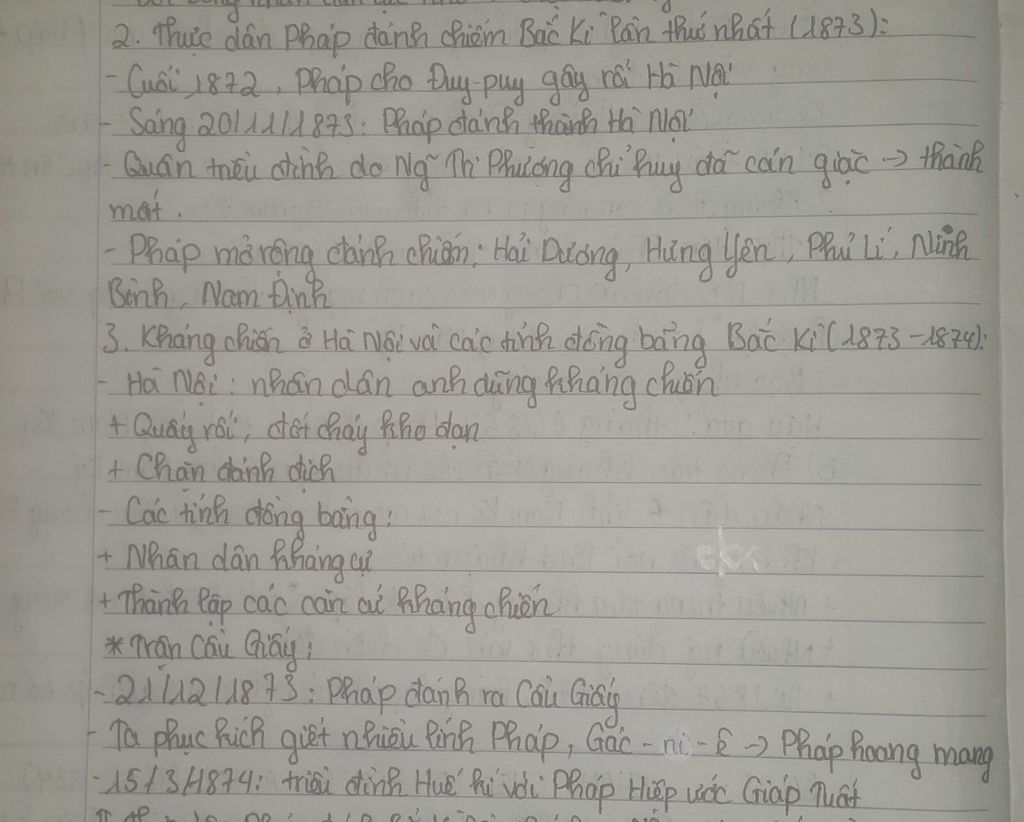 2. Thực dân Pháp đánh chiếm Bắc Kì lần thứ nhất (1873):
- Cuối 1872, Pháp cho Đuy-puy gây rối Hà Nội
- Sáng 20/11/1873: Pháp đánh thành Hà Nội
- Quân triều đình do Ng~ Tri Phương chỉ huy đã cản giặc → thành
mất.
- Pháp mở rộng đánh chiếm: Hải Dương, Hưng Yên, Phủ Lí, Ninh
Bình, Nam Định
3. Kháng chiến ở Hà Nội và các tỉnh đồng bằng Bắc Kì (1873-1874):
- Hà Nội: nhân dân anh dũng kháng chiến
+ Quấy rối, đốt cháy kho đạn
+ Chặn đánh địch
- Các tỉnh đồng bằng:
+ Nhân dân kháng cự
+ Thành lập các căn cứ kháng chiến
* Trận Cầu Giấy:
- 21/12/1873: Pháp đánh ra Cầu Giấy
- Ta phục kích giết nhiều lính Pháp, Gác-ni-ê → Pháp hoang mang
- 15/3/1874: triều đình Huế kí với Pháp Hiệp ước Giáp Tuất